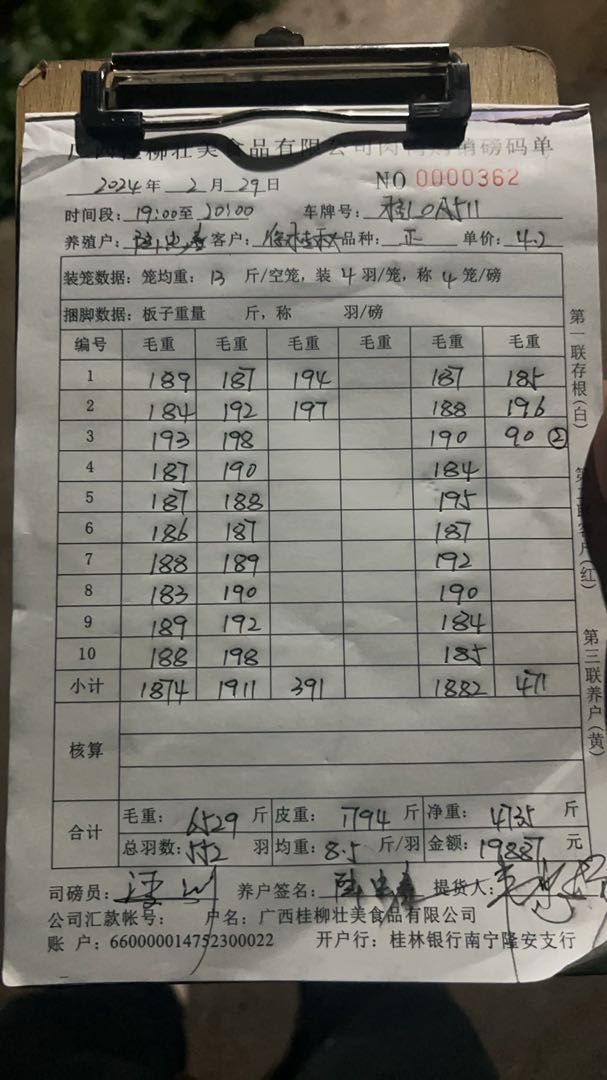 广西桂柳壮美食品有限公司肉鸭购销磅码单
2024年 2月 29日 NO 0000362
时间段: 19:00至20:00 车牌号: 桂L0A511
养殖户: 客户: 品种: 正 单价: 4.2
装笼数据: 笼均重: 13 斤/空笼, 装 4 羽/笼, 称 4 笼/磅
捆脚数据: 板子重量 斤, 称 羽/磅
编号 毛重 毛重 毛重 毛重 毛重 毛重
1 189 187 194 187 185
2 184 192 197 188 196
3 193 198 190 90 ②
4 187 190 184
5 187 188 195
6 186 187 187
7 188 189 192
8 183 190 190
9 189 192 184
10 188 198 185
小计 1874 1911 391 1882 471
核算
合计 毛重: 6529 斤 皮重: 1794 斤 净重: 4735 斤
总羽数: 552 羽 均重: 8.5 斤/羽 金额: 19887 元
司磅员: 养户签名: 提货人:
公司汇款帐号: 户名: 广西桂柳壮美食品有限公司
账 户: 660000014752300022 开户行: 桂林银行南宁隆安支行
第一联存根(白)
第二联客户(红)
第三联养户(黄)